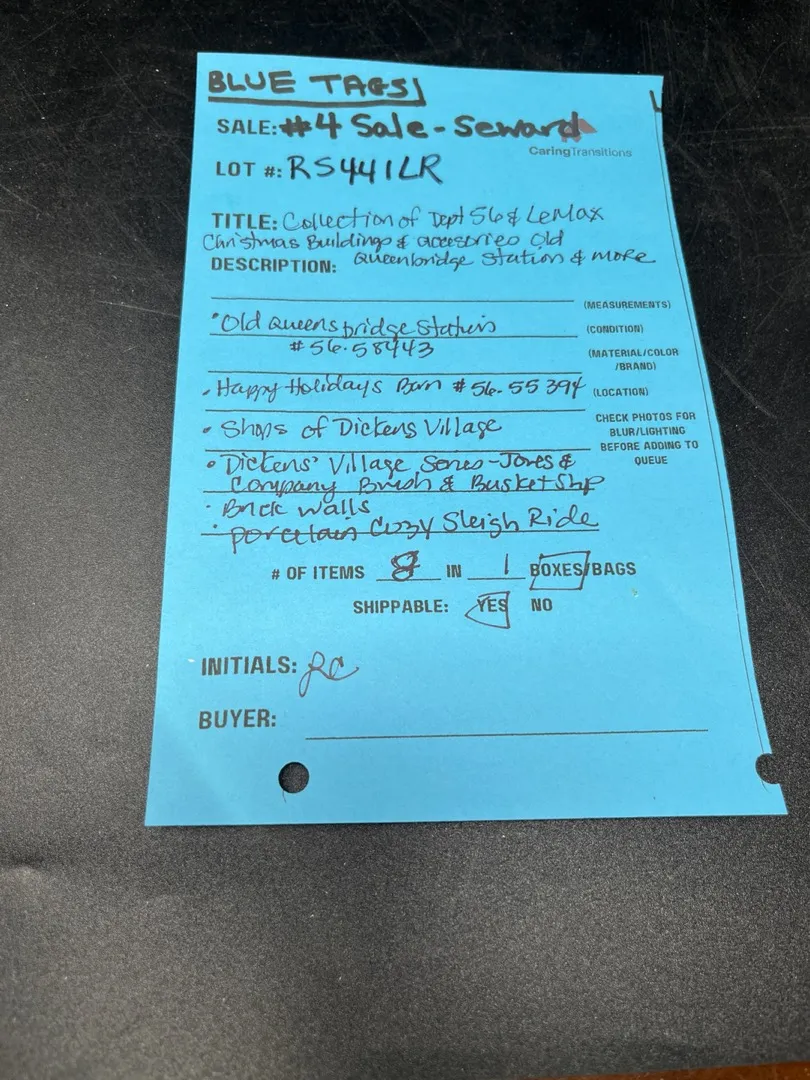 BLUE TAGS
SALE: #4 Sale - Seward
CaringTransitions
LOT #: RS441LR
TITLE: Collection of Dept 56 & LeMax
Christmas Buildings & accesories Old
DESCRIPTION: Queenbridge Station & more
(MEASUREMENTS)
• Old Queensbridge Station
(CONDITION)
#56.58443
(MATERIAL/COLOR
/BRAND)
• Happy Holidays Barn #56.55394
(LOCATION)
• Shops of Dickens Village
CHECK PHOTOS FOR
BLUR/LIGHTING
BEFORE ADDING TO
QUEUE
• Dickens' Village Series - Jones &
Company Brush & Basket Shp
• Brick walls
• porcelain Cozy Sleigh Ride
# OF ITEMS 8 IN 1 BOXES/BAGS
SHIPPABLE: YES NO
INITIALS: RC
BUYER: